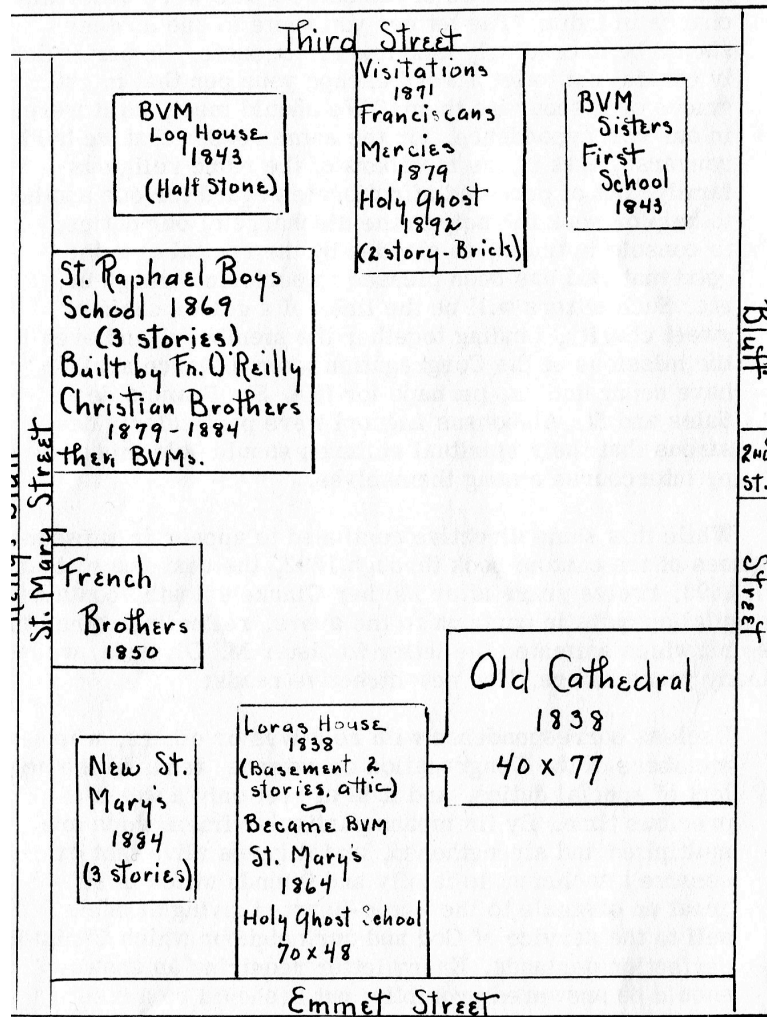 Third Street
BVM
Log House
1843
(Half Stone)
Visitations
1871
Franciscans
Mercies
1879
Holy Ghost
1892
(2 story-Brick)
BVM
Sisters
First
School
1843
St. Raphael Boys
School 1869
(3 stories)
Built by Fr. O'Reilly
Christian Brothers
1877-1884
then BVMs.
St. Mary Street
Bluff
2nd
St.
Street
French
Brothers
1850
Old Cathedral
1838
40 x 77
Loras House
1838
(Basement 2
stories, attic)
Became BVM
St. Mary's
1864
Holy Ghost School
70 x 48
New St.
Marys
1884
(3 stories)
Emmet Street